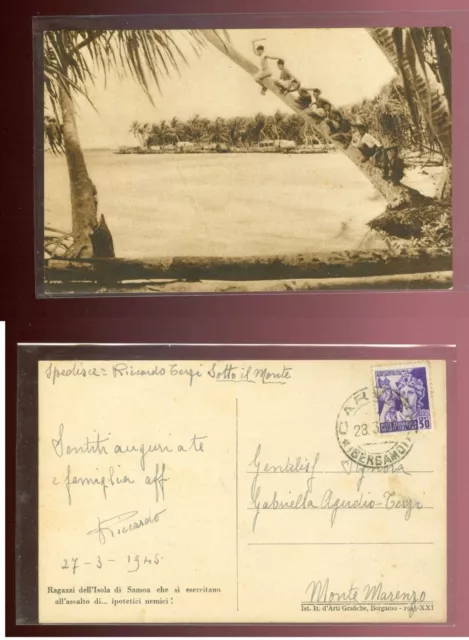 Spedisce = Riccardo Terzi Sotto il Monte
CARV
28.3
(BERGAMO)
50
Sentiti auguri a te
e famiglia aff
Riccardo
27-3-1945
Gentiliss Signora
Gabriella Agudio-Terzi
Monte Marenzo
Ragazzi dell'Isola di Samoa che si esercitano
all'assalto di... ipotetici nemici!
Ist. It. d'Arti Grafiche, Bergamo - 1943-XXI